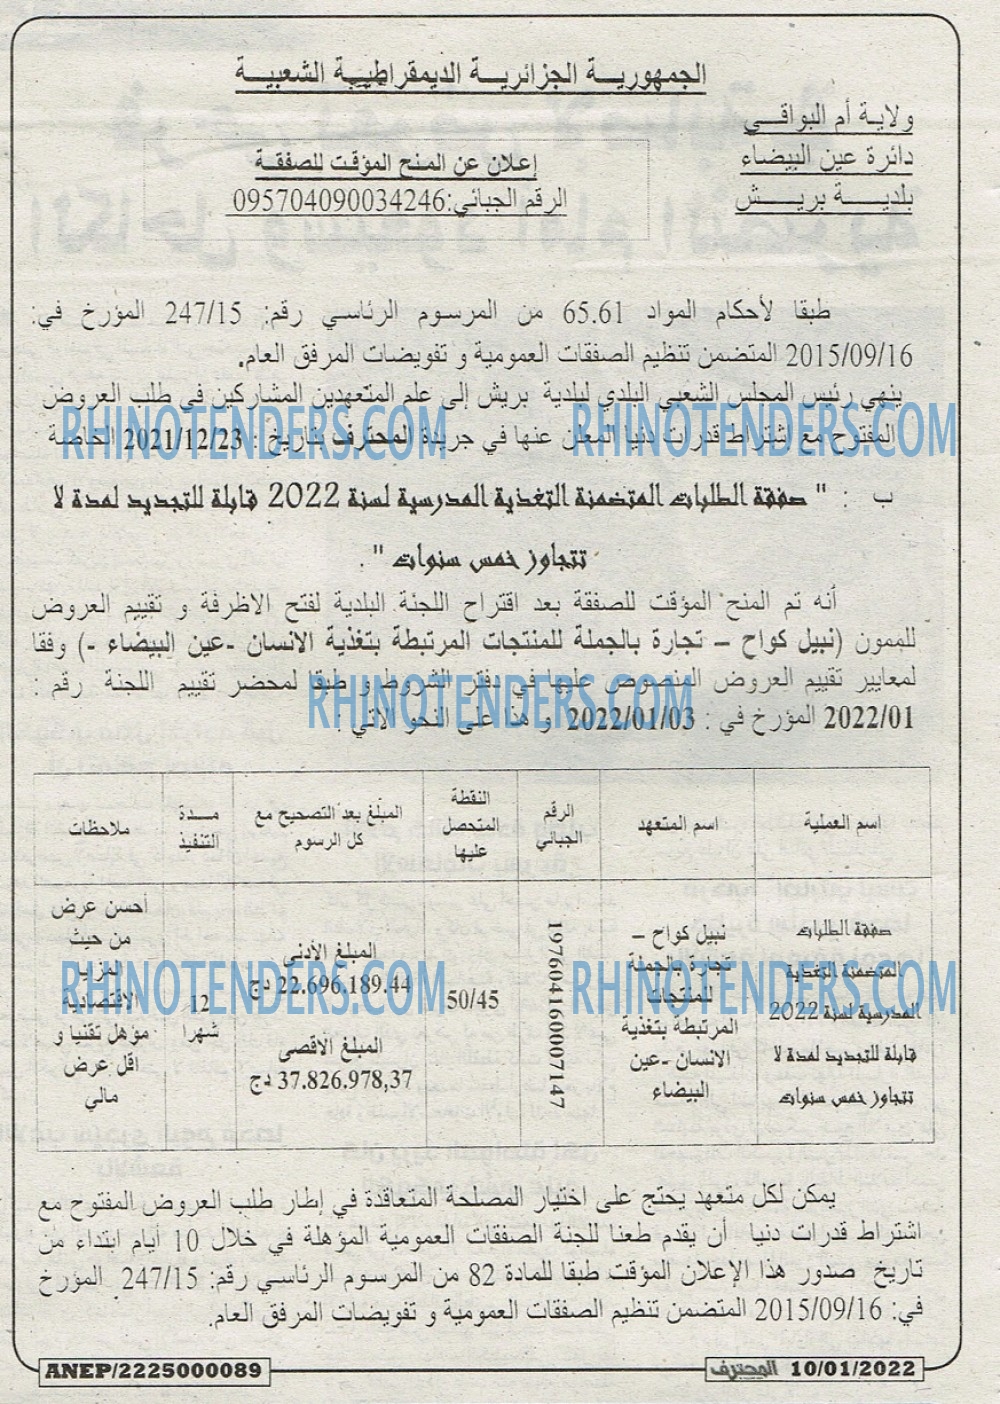 الجمهوريـة الجزائريـة الديمقراطيـة الشعبيـة
ولايـة أم البواقـي
دائرة عين البيضاء
بلديـــة بريـــش
إعلان عن المنح المؤقت للصفقة
الرقم الجبائي:095704090034246
طبقا لأحكام المواد 65.61 من المرسوم الرئاسي رقم: 247/15 المؤرخ في:
2015/09/16 المتضمن تنظيم الصفقات العمومية و تفويضات المرفق العام.
ينهي رئيس المجلس الشعبي البلدي لبلدية بريش إلى علم المتعهدين المشاركين في طلب العروض
المفتوح مع اشتراط قدرات دنيا المعلن عنها في جريدة المحترف بتاريخ : 2021/12/23 الخاصة
ب : " صفقة الطلبات المتضمنة التغذية المدرسية لسنة 2022 قابلة للتجديد لمدة لا
تتجاوز خمس سنوات " .
أنه تم المنح المؤقت للصفقة بعد اقتراح اللجنة البلدية لفتح الاظرفة و تقييم العروض
للممون (نبيل كواح – تجارة بالجملة للمنتجات المرتبطة بتغذية الانسان -عين البيضاء -) وفقا
لمعايير تقييم العروض المنصوص عليها في دفتر الشروط و طبقا لمحضر تقييم اللجنة رقم :
2022/01 المؤرخ في : 2022/01/03 و هذا على النحو الاتي :
اسم العملية
اسم المتعهد
الرقم
الجبائي
النقطة
المتحصل
عليها
المبلغ بعد التصحيح مع
كل الرسوم
مـــدة
التنفيذ
ملاحظات
صفقة الطلبات
المتضمنة التغذية
المدرسية لسنة 2022
قابلة للتجديد لمدة لا
تتجاوز خمس سنوات
نبيل كواح –
تجارة بالجملة
للمنتجات
المرتبطة بتغذية
الانسان -عين
البيضاء
197604160007147
50/45
المبلغ الأدنى
22.696.189.44 دج
المبلغ الأقصى
37.826.978,37 دج
12
شهرا
أحسن عرض
من حيث
المزايا
الاقتصادية
مؤهل تقنيا و
اقل عرض
مالي
يمكن لكل متعهد يحتج على اختيار المصلحة المتعاقدة في إطار طلب العروض المفتوح مع
اشتراط قدرات دنيا أن يقدم طعنا للجنة الصفقات العمومية المؤهلة في خلال 10 أيام ابتداء من
تاريخ صدور هذا الإعلان المؤقت طبقا للمادة 82 من المرسوم الرئاسي رقم: 247/15 المؤرخ
في: 2015/09/16 المتضمن تنظيم الصفقات العمومية و تفويضات المرفق العام.
ANEP/2225000089
المحترف 10/01/2022
RHINOTENDERS.COM
RHINOTENDERS.COM
RHINOTENDERS.COM
RHINOTENDERS.COM
RHINOTENDERS.COM